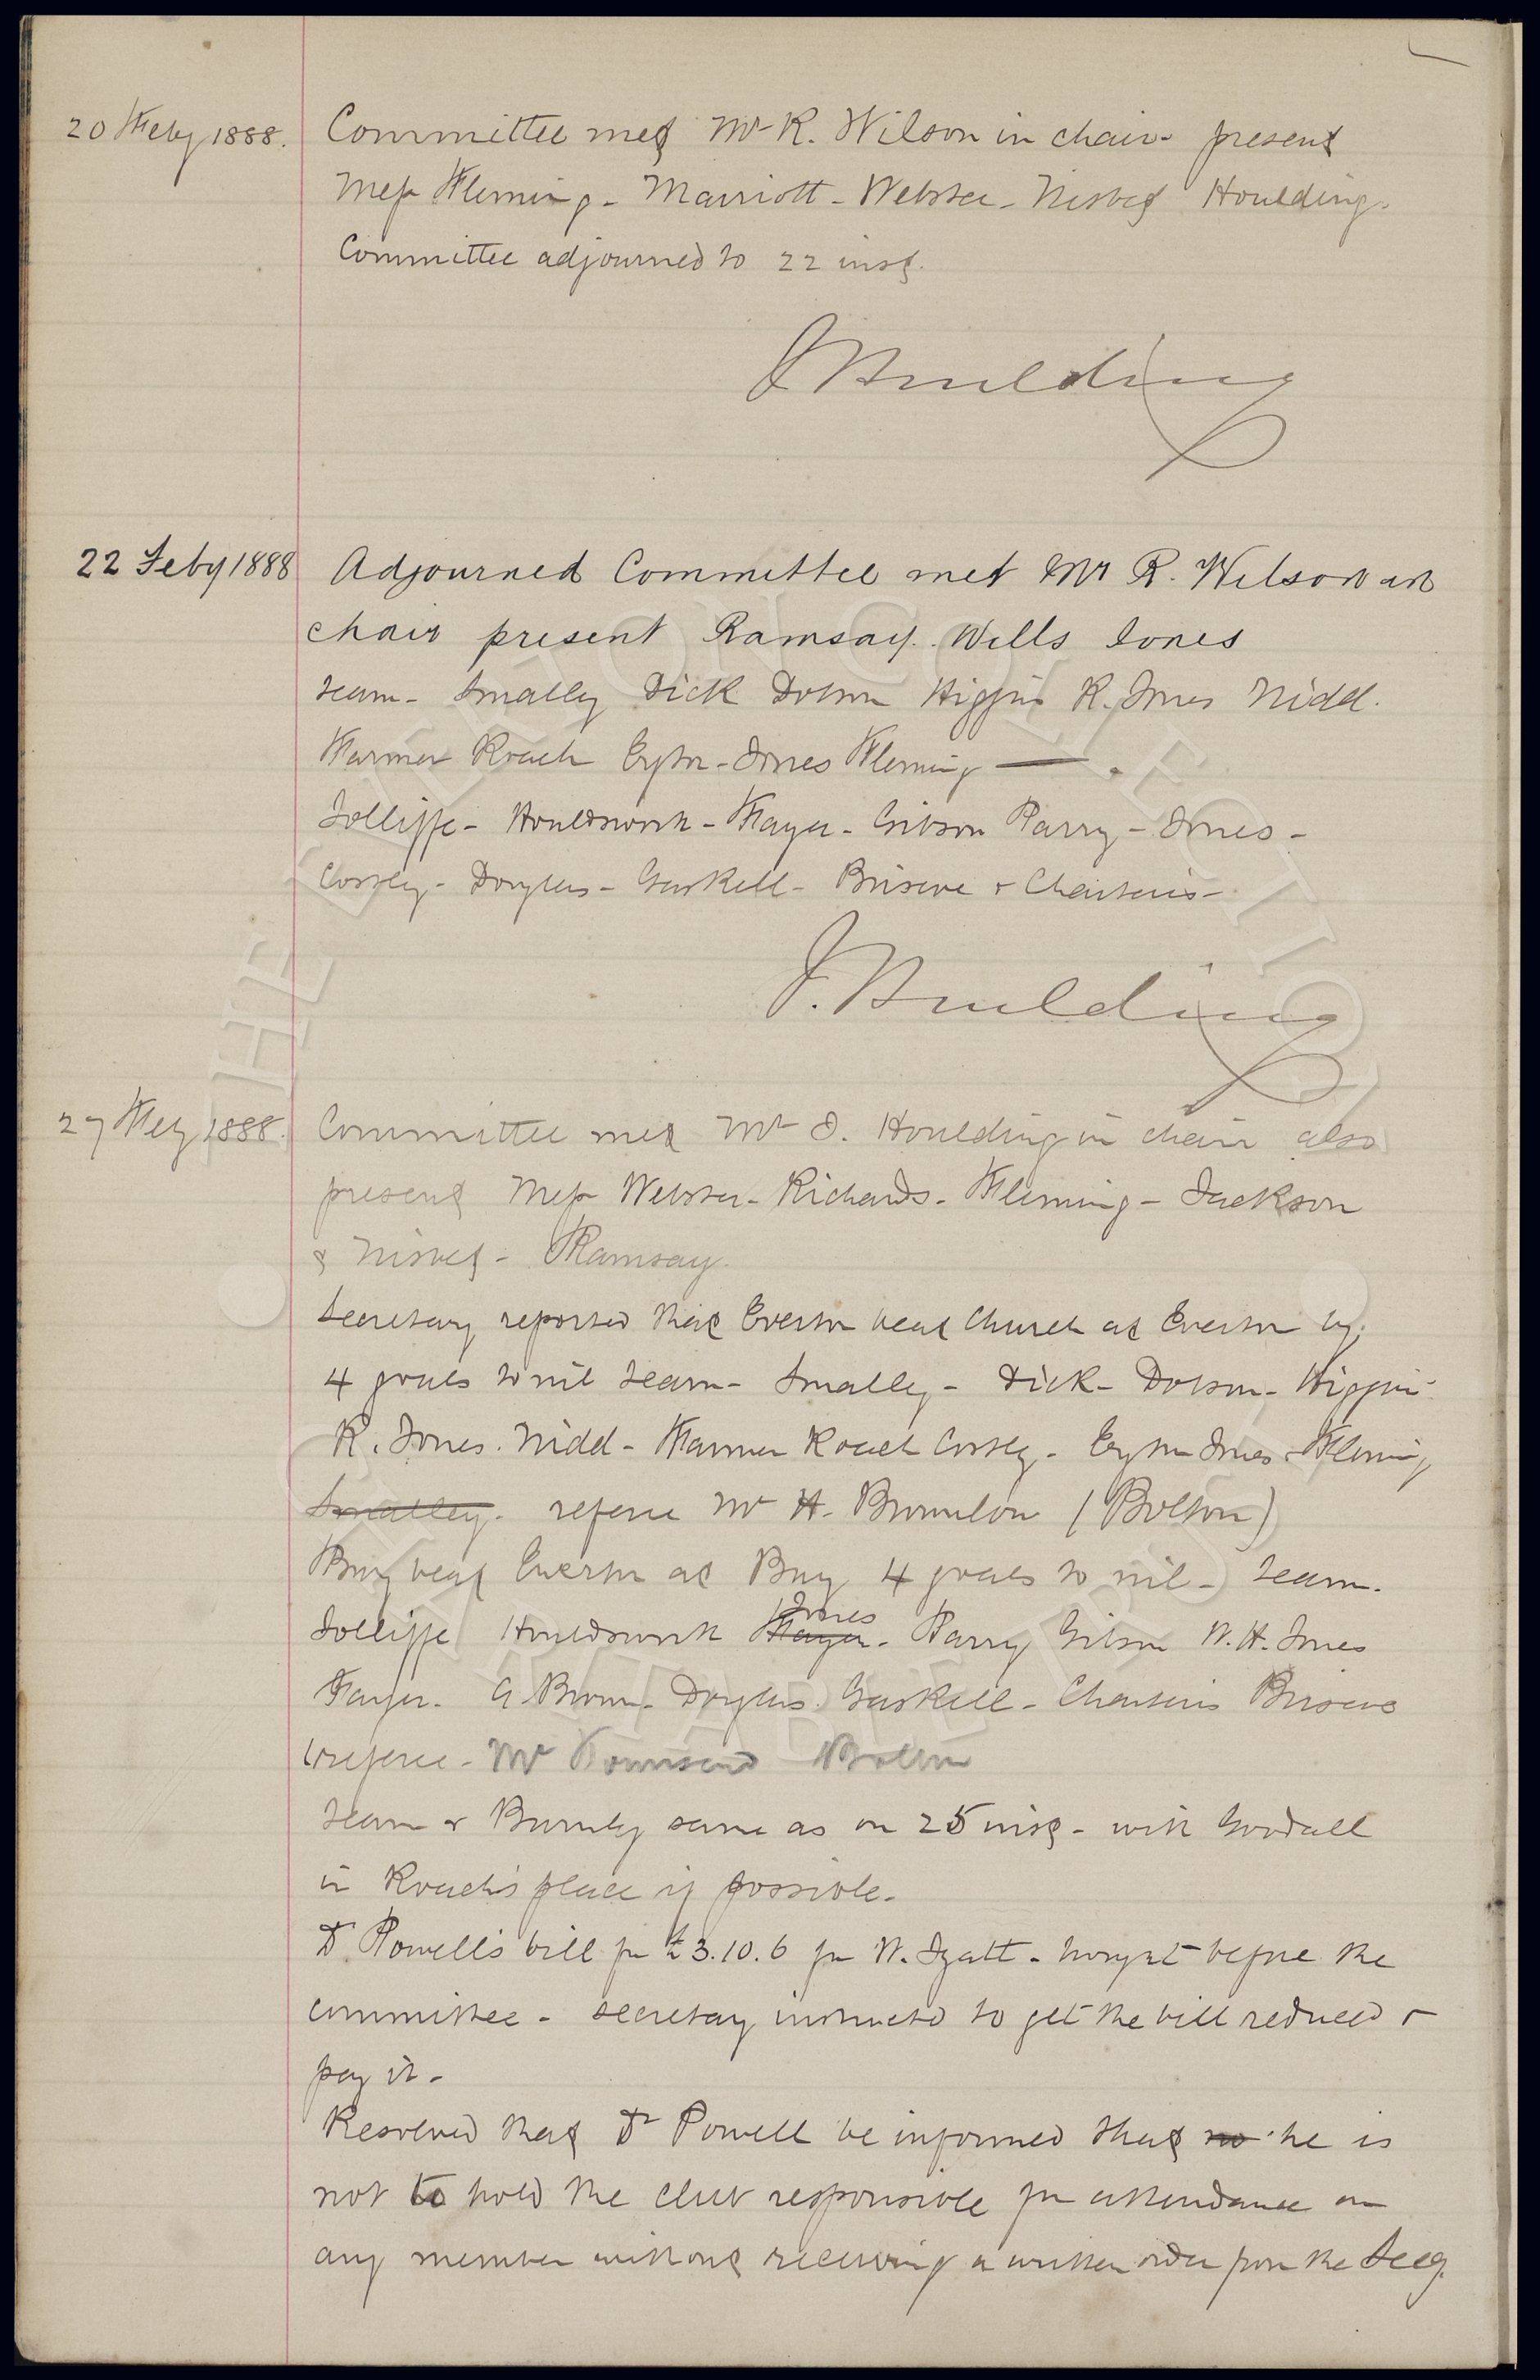 20 Feby 1888. Committee met Mr R. Wilson in chair present
Mess Fleming - Marriott - Webster - Nisbet Houlding.
Committee adjourned to 22 inst.
J Houlding
22 Feby 1888 Adjourned Committee met Mr R. Wilson in
chair present Ramsay. Wills Jones
team - Smalley Dick Dobson Higgins R. Jones Nidd.
Farmer Roach Eyton-Jones Fleming —
Jolliffe - Houldsworth - Fayer - Gibson Parry - Jones -
Costley - Douglas - Gaskell - Briscoe & Charteris -
J. Houlding
27 Feby 1888. Committee met Mr J. Houlding in chair also
present Mess Webster - Richards - Fleming - Jackson
& Nisbet - Ramsay.
Secretary reported that Everton beat Church at Everton by
4 goals to nil team - Smalley - Dick - Dobson - Higgins
R. Jones. Nidd - Farmer Roach Costley - Eyton Jones - Fleming
Smalley. referee Mr H. Bromilow (Bolton)
Bury beat Everton at Bury 4 goals to nil - team.
Jolliffe Houldsworth Fayer - Jones Parry Gibson W. H. Jones
Fayer - G Brown - Douglas. Gaskell - Charteris Briscoe
referee - Mr Townsend Bolton
team v Burnley same as on 25 inst - with Goodall
in Roach's place if possible -
Dr Powell's bill for £3.10.6 for W. Izatt - brought before the
committee - secretary instructed to get the bill reduced &
pay it -
Resolved that Dr Powell be informed that no he is
not to hold the club responsible for attendance on
any member without receiving a written order from the Secy.
THE EVERTON COLLECTION
CHARITABLE TRUST